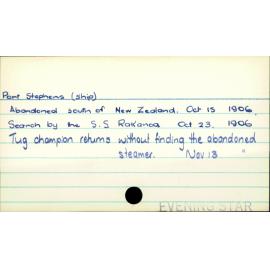 Port Stephens (ship)
Abandoned south of New Zealand. Oct 15 1906.
Search by the S.S Rakanoa Oct 23. 1906
Tug champion returns without finding the abandoned
steamer. Nov 13 "
EVENING STAR